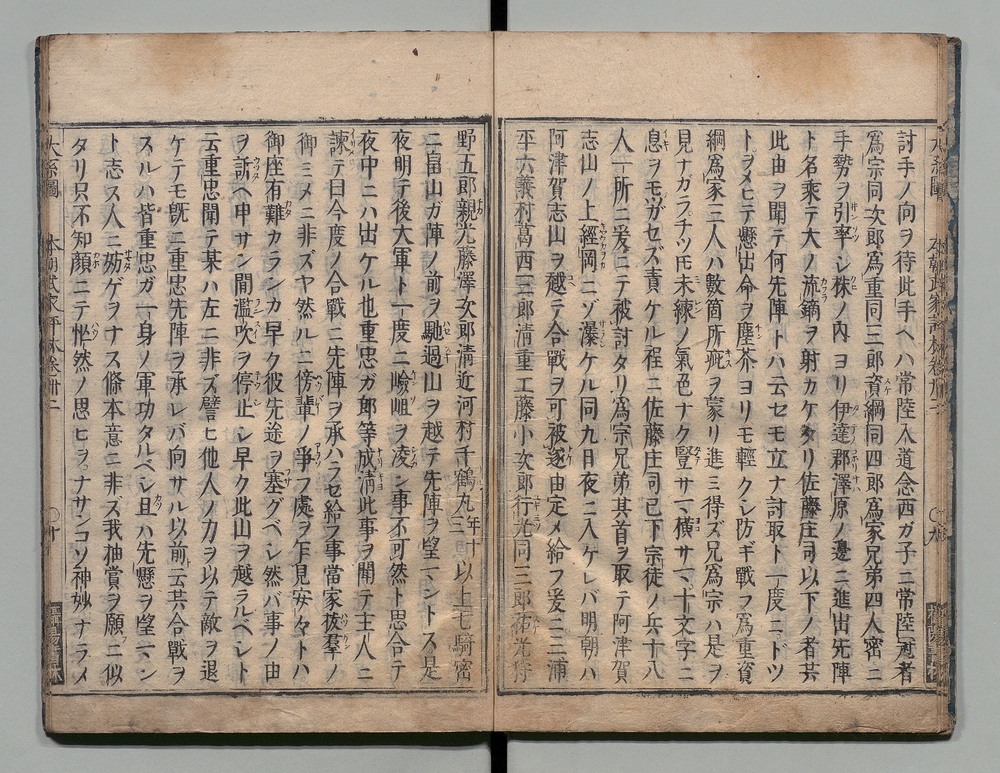 討手ノ向ヲ待此手ヘハ常陸入道念西ガ子ニ常陸冠者
爲宗同次郎爲重同三郎資綱同四郎爲家兄弟四人密ニ
手勢ヲ引率シ株ノ內ヨリ伊達郡澤原ノ邊ニ進出先陣
ト名乘テ大ノ流鏑ヲ射カケタリ佐藤庄司以下ノ者共
此由ヲ聞テ何先陣トハ云セモ立ナ討取ト一度ニドツ
トヲメヒテ懸出命ヲ塵芥ヨリモ輕クシ防ギ戰フ爲重資
綱爲家三人ハ數箇所疵ヲ蒙リ進ミ得ズ兄爲宗ハ是ヲ
見ナガラチツモ未練ノ氣色ナク豎サマ橫サマ十文字ニ
息ヲモツガセズ責ケル程ニ佐藤庄司已下宗徒ノ兵十八
人一所ニ爰ニテ被討タリ爲宗兄弟其首ヲ取テ阿津賀
志山ノ上經岡ニゾ瀑ケル同九日夜ニ入ケレバ明朝ハ
阿津賀志山ヲ越テ合戰ヲ可被遂由定メ給フ爰ニ三浦
平六義村葛西三郎清重工藤小次郎行光同三郎祐光狩
野五郎親光藤澤次郎清近河村千鶴丸年十三以上七騎密
ニ畠山ガ陣ノ前ヲ馳過山ヲ越テ先陣ヲ望マントス是
夜明テ後大軍ト一度ニ嶮岨ヲ凌ン事不可然ト思合テ
夜中ニハ出ケル也重忠ガ郎等成清此事ヲ聞テ主人ニ
諫テ曰今度ノ合戰ニ先陣ヲ承ハラセ給フ事當家拔羣ノ
御ミメニ非ズヤ然ルニ傍輩ノ爭フ處ヲ乍見安々トハ
御座有難カランカ早ク彼先途ヲ塞グベシ然バ事ノ由
ヲ訴ヘ申サン間濫吹ヲ停止シ早ク此山ヲ越ラルベシト
云重忠聞テ某ハ左ニ非ズ譬ヒ他人ノ力ヲ以テ敵ヲ退
ケテモ既ニ重忠先陣ヲ承レバ向サル以前ニ云共合戰ヲ
スルハ皆重忠ガ一身ノ軍功タルベシ且ハ先懸ヲ望マン
ト志ス人ニ妨ゲヲナス條本意ニ非ズ我神賞ヲ願ニ似
タリ只不知顏ニテ恠然ノ思ヒヲナサンコソ神妙ナラメ
大系圖 本朝武家評林卷卅二 〇十